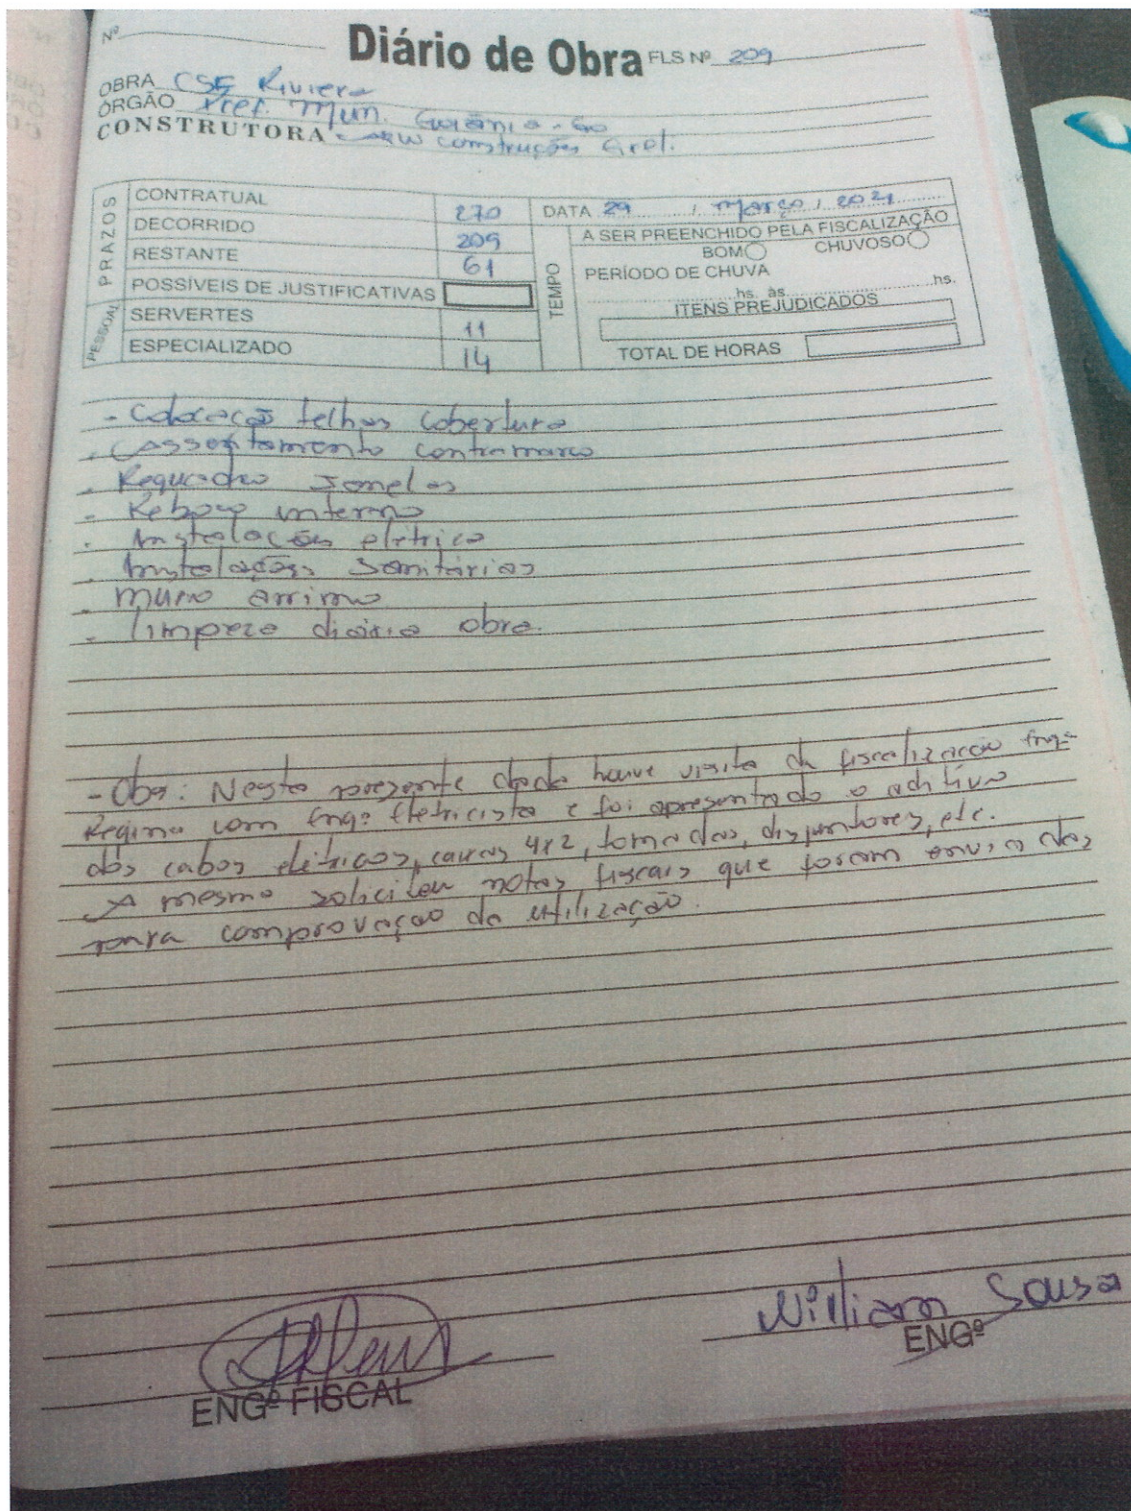 Nº
Diário de Obra FLS Nº 209
OBRA CSF Riviera
ÓRGÃO Pref. Mun. Goiânia-Go
CONSTRUTORA construções Eirel.
PRAZOS
CONTRATUAL 270
DECORRIDO 209
RESTANTE 61
POSSÍVEIS DE JUSTIFICATIVAS
PESSOAL
SERVERTES 11
ESPECIALIZADO 14
DATA 29 / Março / 2021
TEMPO
A SER PREENCHIDO PELA FISCALIZAÇÃO
BOM CHUVOSO
PERÍODO DE CHUVA
hs. às hs.
ITENS PREJUDICADOS
TOTAL DE HORAS
- Colocação telhas cobertura
. Assentamento contramarco
. Requadro Janelas
- Reboco interno
. Instalações elétrica
. Instalações Sanitárias
. Muro arrimo
. limpeza diária obra.
- Obs: Nesta presente data houve visita da fiscalização Engª
Regina com Engº Eletricista e foi apresentado o aditivo
dos cabos elétricos, caixas 4x2, tomadas, disjuntores, etc.
A mesma solicitou notas fiscais que foram enviadas
para comprovação da utilização.
ENGº FISCAL
William Sousa
ENGº